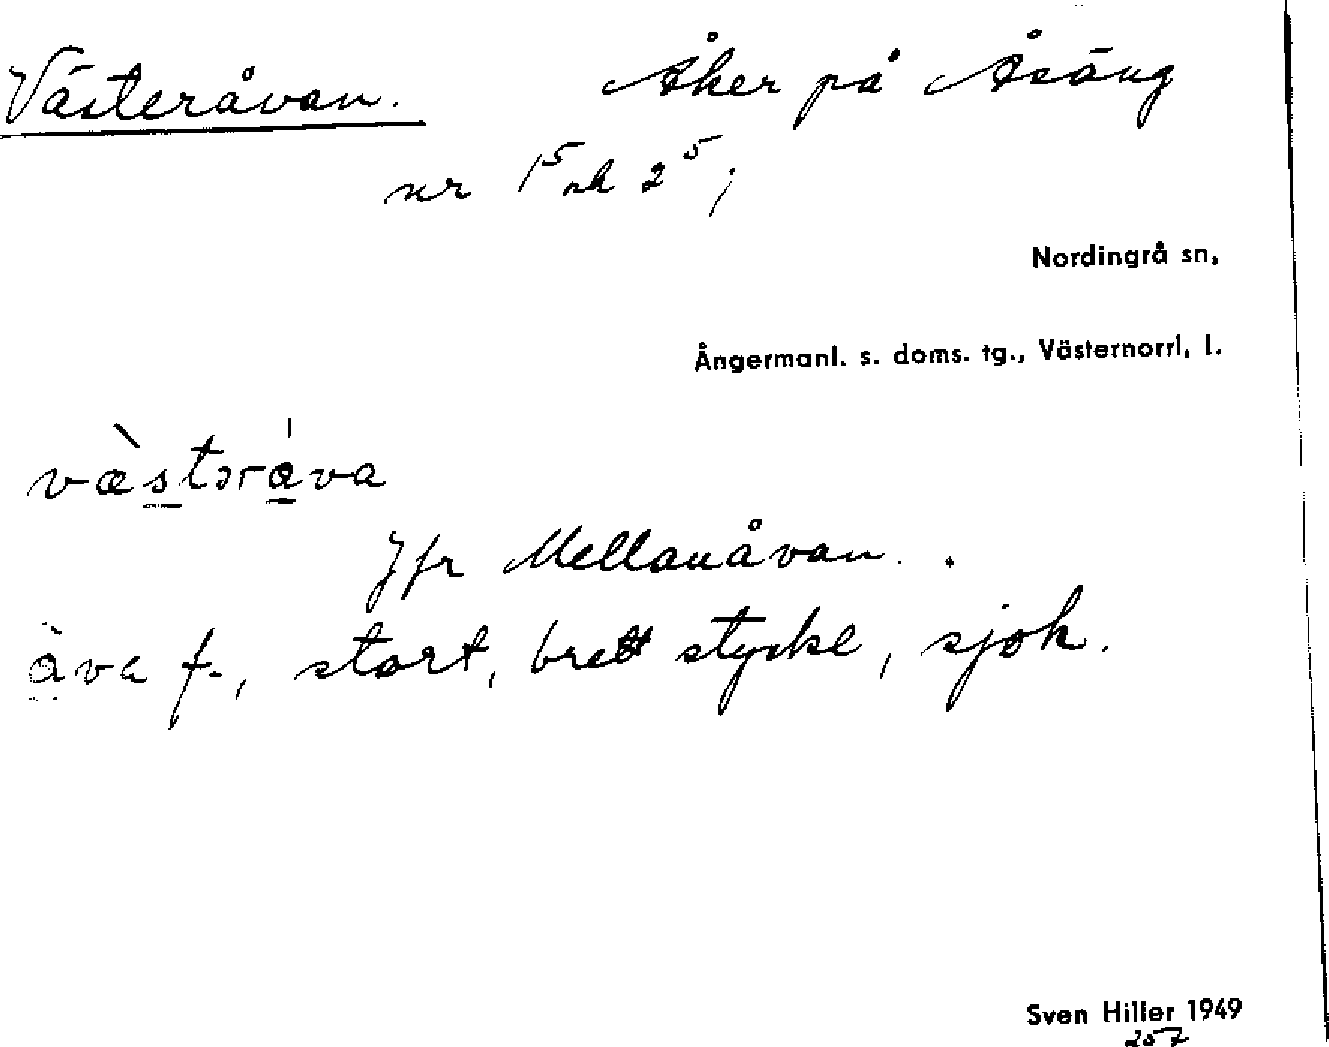 Västeråvan. Åker på Åsäng
nr 1⁵ och 2⁵;
Nordingrå sn,
Ångermanl. s. doms. tg., Västernorrl. l.
væ̀stəráva
Jfr Mellanåvan.
àva f., stort, brett stycke, sjok.
Sven Hiller 1949
257